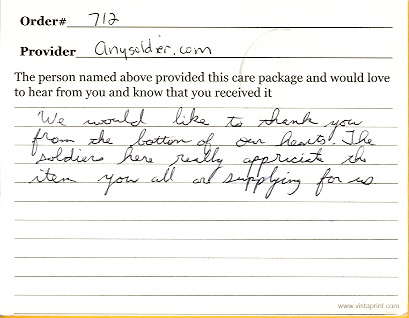 Order# 712
Provider anysoldier.com
The person named above provided this care package and would love
to hear from you and know that you received it
We would like to thank you
from the bottom of our hearts. The
soldiers here really appriciate the
item you all are supplying for us
www.vistaprint.com